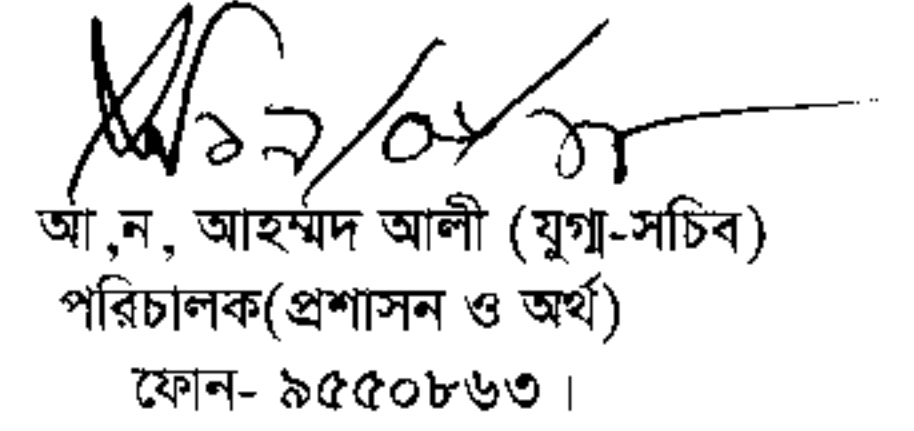 আ,ন, আহম্মদ আলী (যুগ্ম-সচিব)
পরিচালক(প্রশাসন ও অর্থ)
ফোন- ৯৫৫০৮৬৩ ।